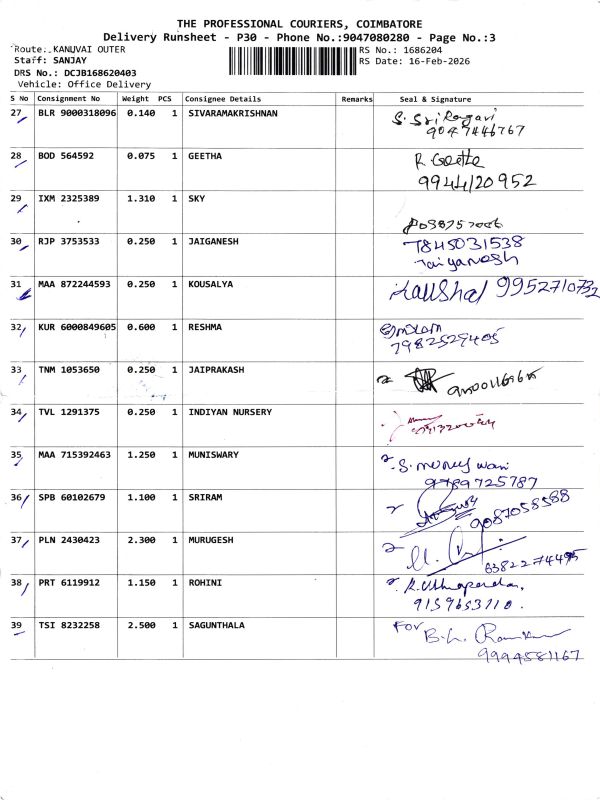 THE PROFESSIONAL COURIERS, COIMBATORE
Delivery Runsheet - P30 - Phone No.:9047080280 - Page No.:3
Route: KANUVAI OUTER
RS No.: 1686204
Staff: SANJAY
RS Date: 16-Feb-2026
DRS No.: DCJB168620403
Vehicle: Office Delivery
S No Consignment No Weight PCS Consignee Details Remarks Seal & Signature
27 BLR 9000318096 0.140 1 SIVARAMAKRISHNAN S. Sri Ragavi
9047446767
28 BOD 564592 0.075 1 GEETHA R Geetha
9944120952
29 IXM 2325389 1.310 1 SKY
30 RJP 3753533 0.250 1 JAIGANESH 7845031538
Jaiganesh
31 MAA 872244593 0.250 1 KOUSALYA Kaushal 9952710732
32 KUR 6000849605 0.600 1 RESHMA
7982529405
33 TNM 1053650 0.250 1 JAIPRAKASH
34 TVL 1291375 0.250 1 INDIYAN NURSERY
35 MAA 715392463 1.250 1 MUNISWARY S. muneyswari
9789725787
36 SPB 60102679 1.100 1 SRIRAM
9087058588
37 PLN 2430423 2.300 1 MURUGESH
6382274495
38 PRT 6119912 1.150 1 ROHINI
9159653710.
39 TSI 8232258 2.500 1 SAGUNTHALA For
9994581167